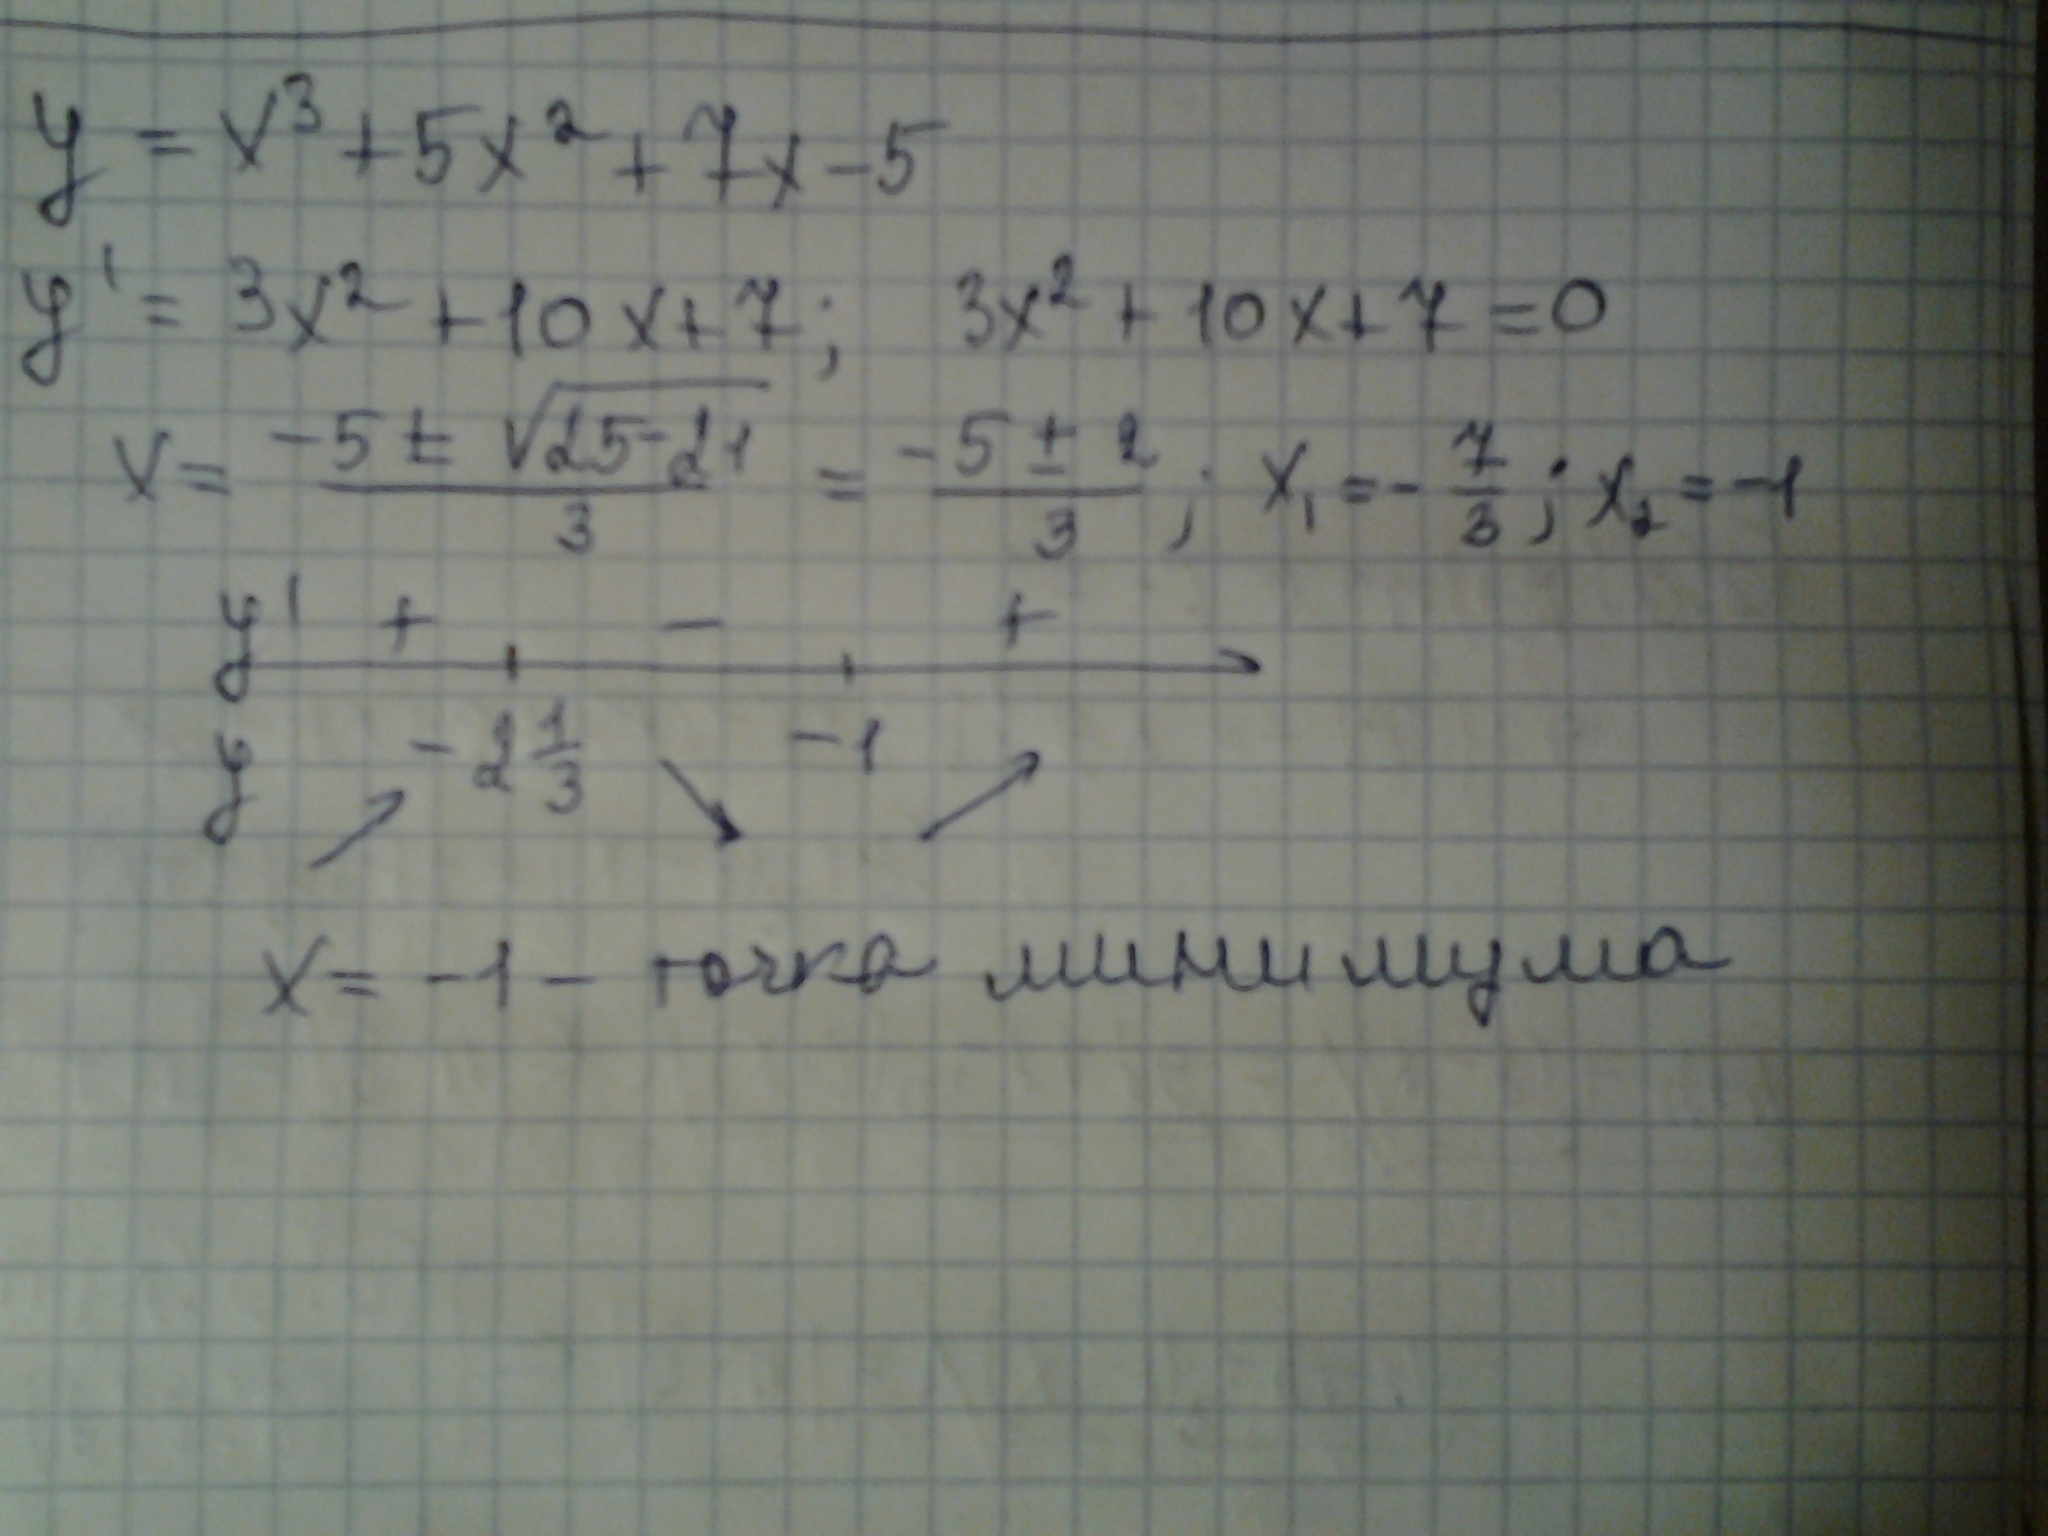 y = x³ + 5x² + 7x - 5
y' = 3x² + 10x + 7; 3x² + 10x + 7 = 0
x = (-5 ± √(25-21))/3 = (-5 ± 2)/3; x₁ = -7/3; x₂ = -1
y' + - +
y -2 1/3 -1
x = -1 - точка минимума